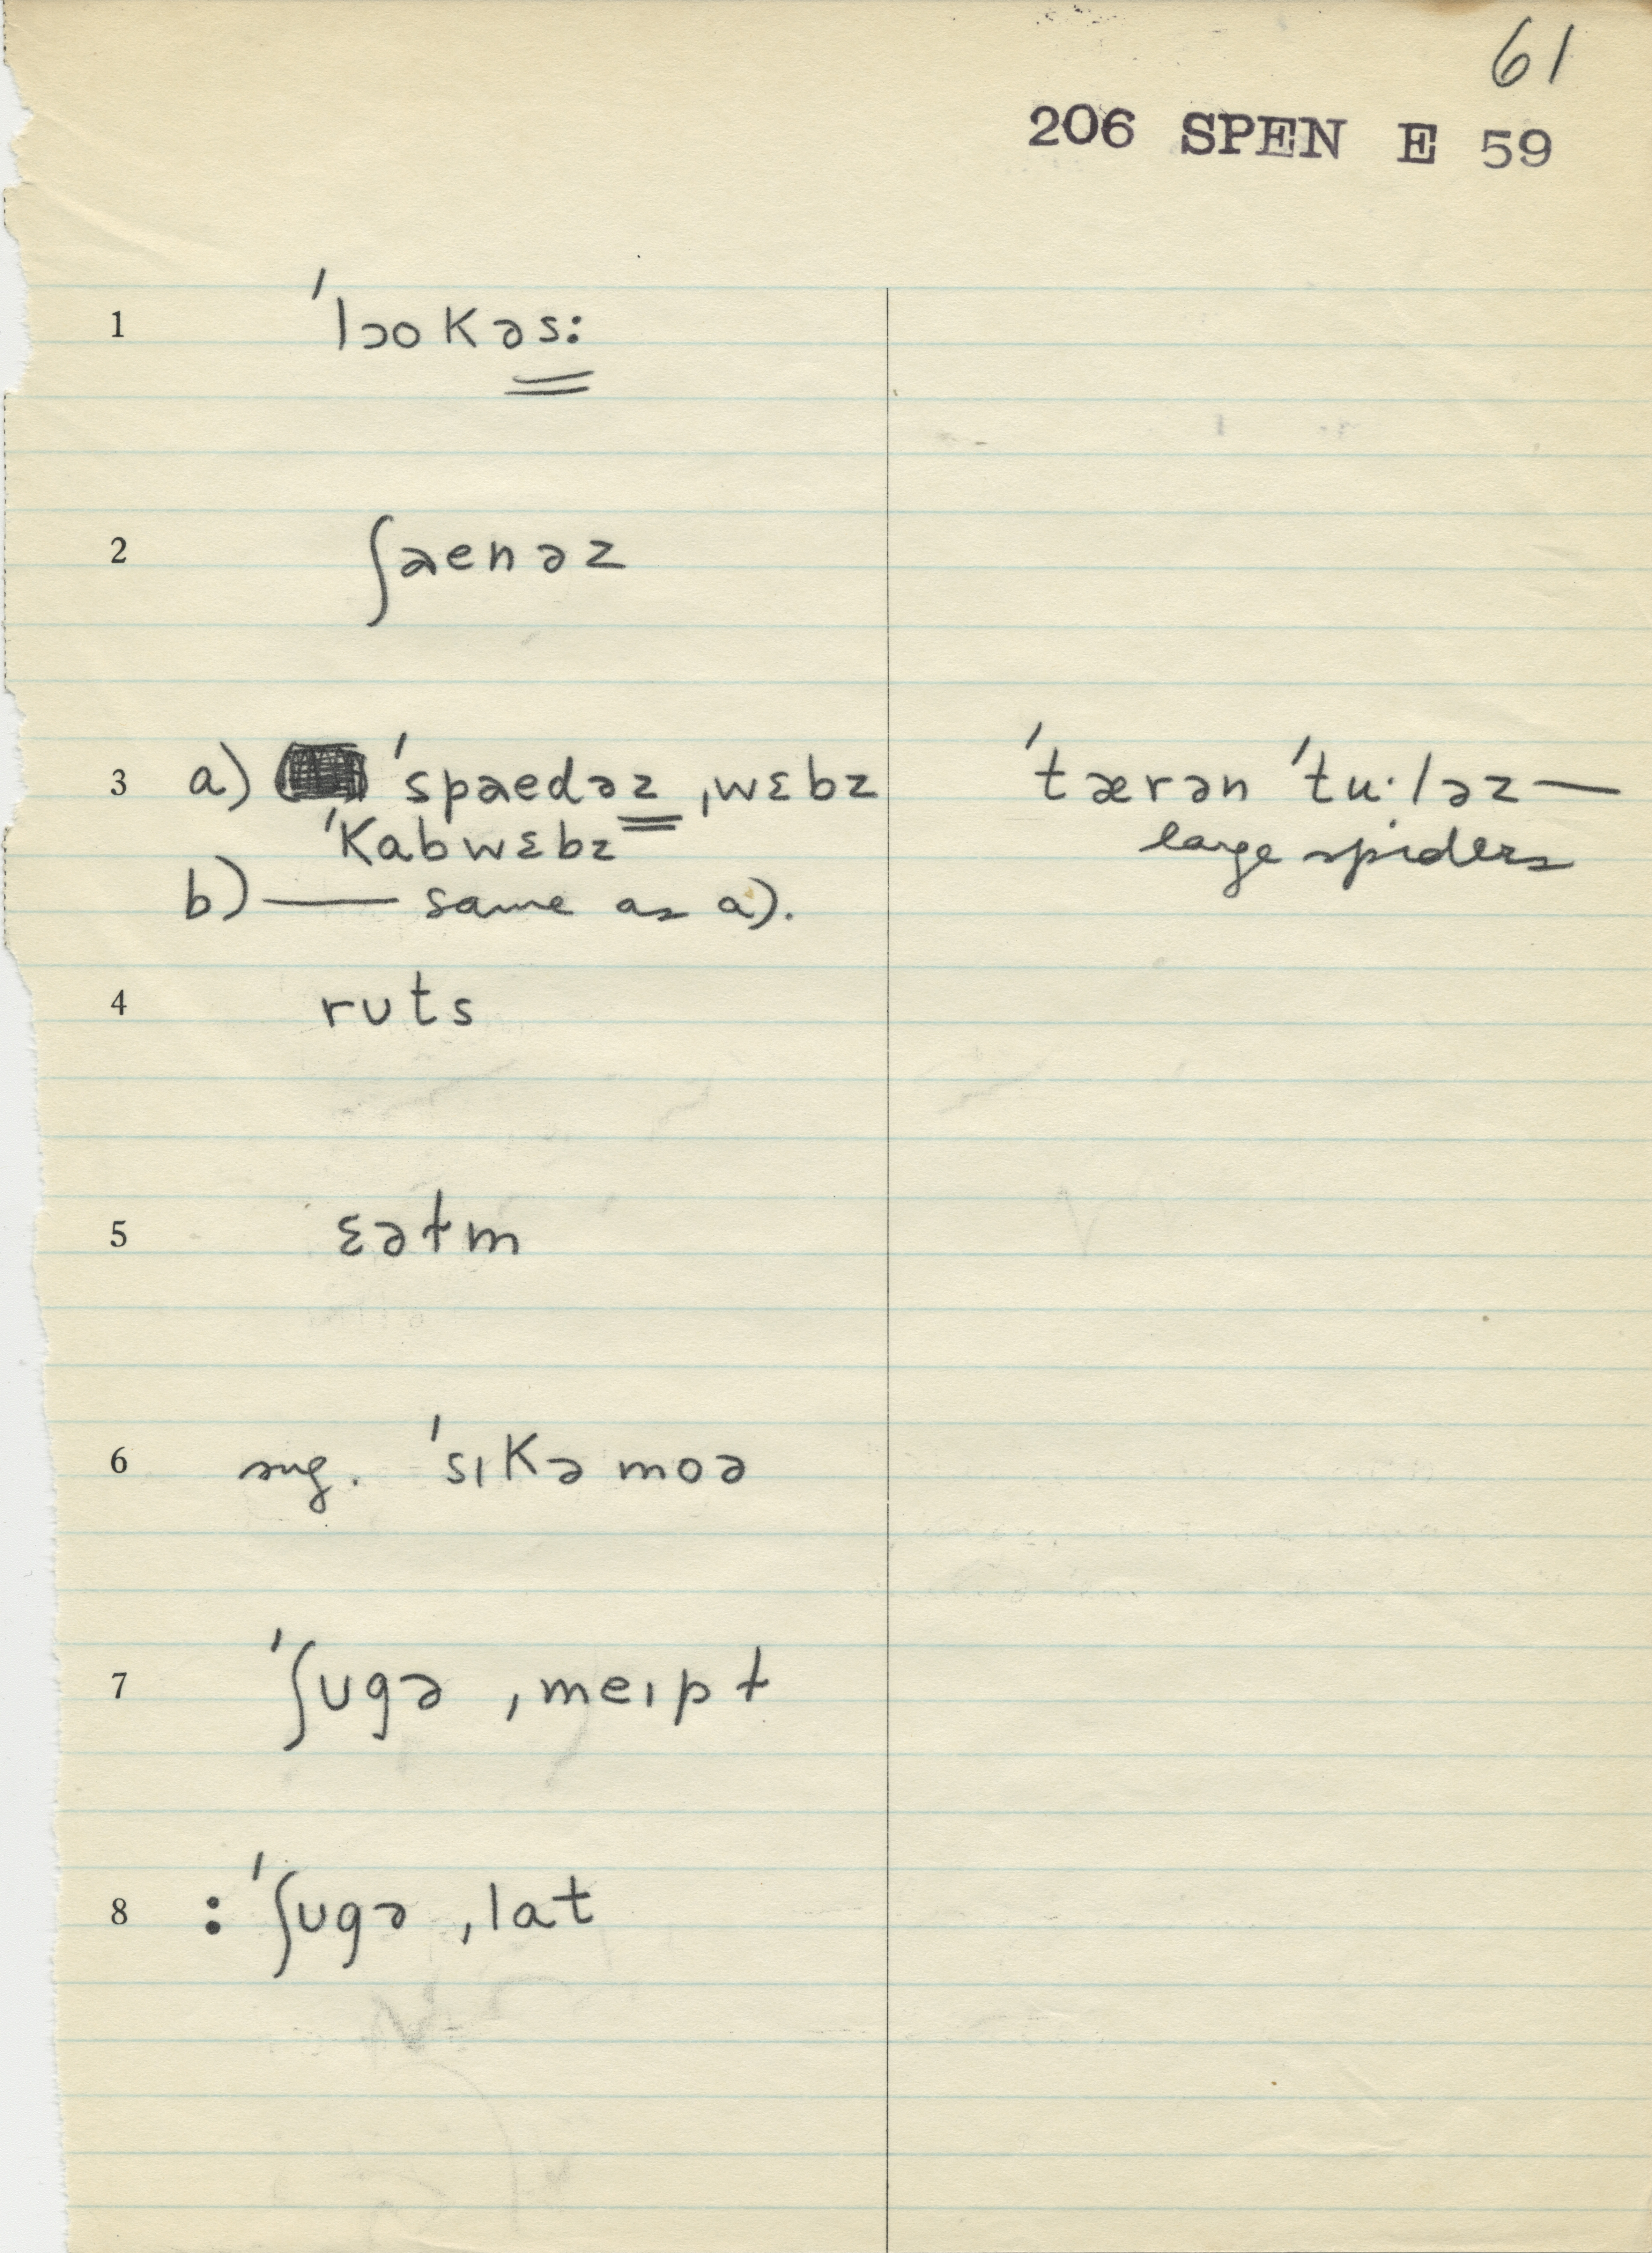 61
206 SPEN E 59
1 ˈlɔokəs:
2 ʃaenəz
3 a) ˈspaedəz ˌwɛbz ˈtærən ˈtu·ləz —
ˈkabwɛbz large spiders
b) — same as a).
4 ruts
5 ɛətm
6 sug. ˈsɪkəmoə
7 ˈʃugə ˌmeɪpt
8 : ˈʃugə ˌlat